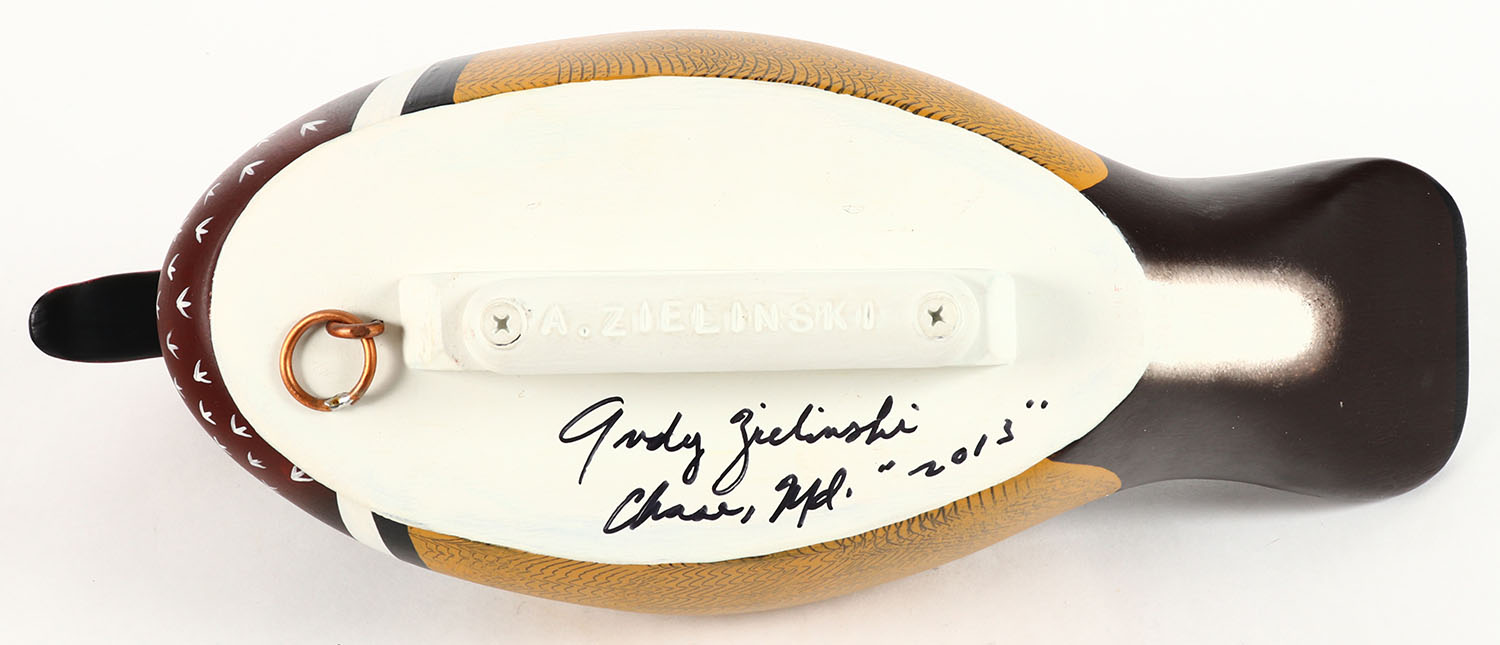 A. ZIELINSKI
Andy Zielinski
Chase, Md. "2013"